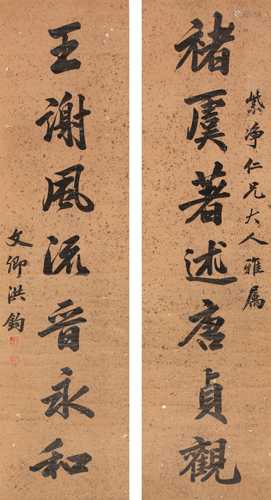 紫净仁兄大人雅属
褚虞著述唐贞觀
王謝風流晉永和
文卿洪鈞